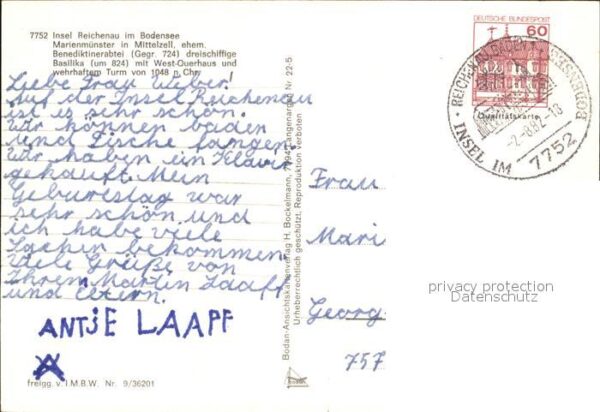 7752 Insel Reichenau im Bodensee
Marienmünster in Mittelzell, ehem.
Benediktinerabtei (Gegr. 724) dreischiffige
Basilika (um 824) mit West-Querhaus und
wehrhaftem Turm von 1048 n. Chr.
Liebe Frau Weber!
Auf der Insel Reichenau
ist es sehr schön.
wir können baden
und Fische fangen.
wir haben ein Klavier
gekauft. Mein
Geburtstag war
sehr schön und
ich habe viele
Sachen bekommen.
viele Grüße von
Ihrem Martin Laapf
und Eltern.
ANTJE LAAPF
freigg. v. I.M.B.W. Nr. 9/36201
Bodan-Ansichtskartenverlag H. Bockelmann, Langenargen Nr. 22-5
Urheberrechtlich geschützt. Reproduktion verboten
DEUTSCHE BUNDESPOST
60
Qualitätskarte
REICHENAU
INSEL IM BODENSEE
-2.-8.82.-18
7752
Frau
Mari
Georg
757
privacy protection
Datenschutz